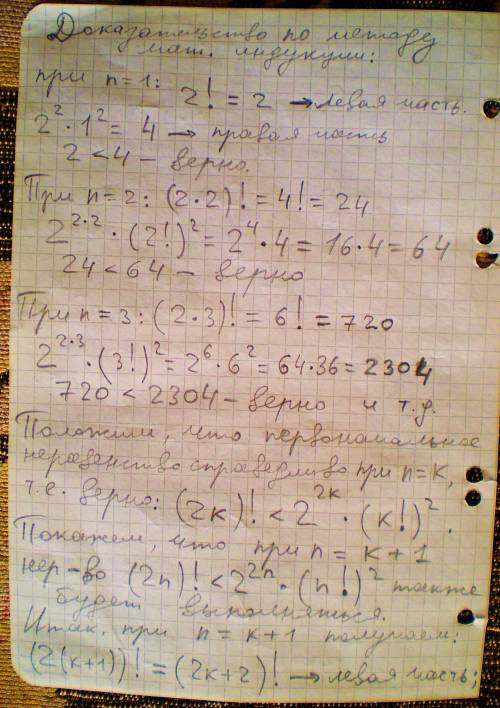 Доказательство по методу
мат. индукции:
при n=1: 2! = 2 → левая часть.
2²·1² = 4 → правая часть
2 < 4 – верно.
При n=2: (2·2)! = 4! = 24
2^{2·2}·(2!)² = 2⁴·4 = 16·4 = 64
24 < 64 – верно
При n=3: (2·3)! = 6! = 720
2^{2·3}·(3!)² = 2⁶·6² = 64·36 = 2304
720 < 2304 – верно и т.д.
Положим, что первоначальное
неравенство справедливо при n=k,
т.е. верно: (2k)! < 2^{2k}·(k!)².
Покажем, что при n = k+1
нер-во (2n)! < 2^{2n}·(n!)² также
будет выполняться.
Итак, при n = k+1 получаем:
(2(k+1))! = (2k+2)! → левая часть;